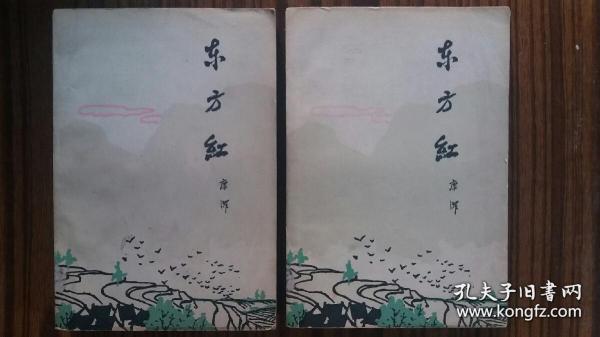 东方紅
康濯
东方紅
康濯
孔夫子旧書网
www.kongfz.com